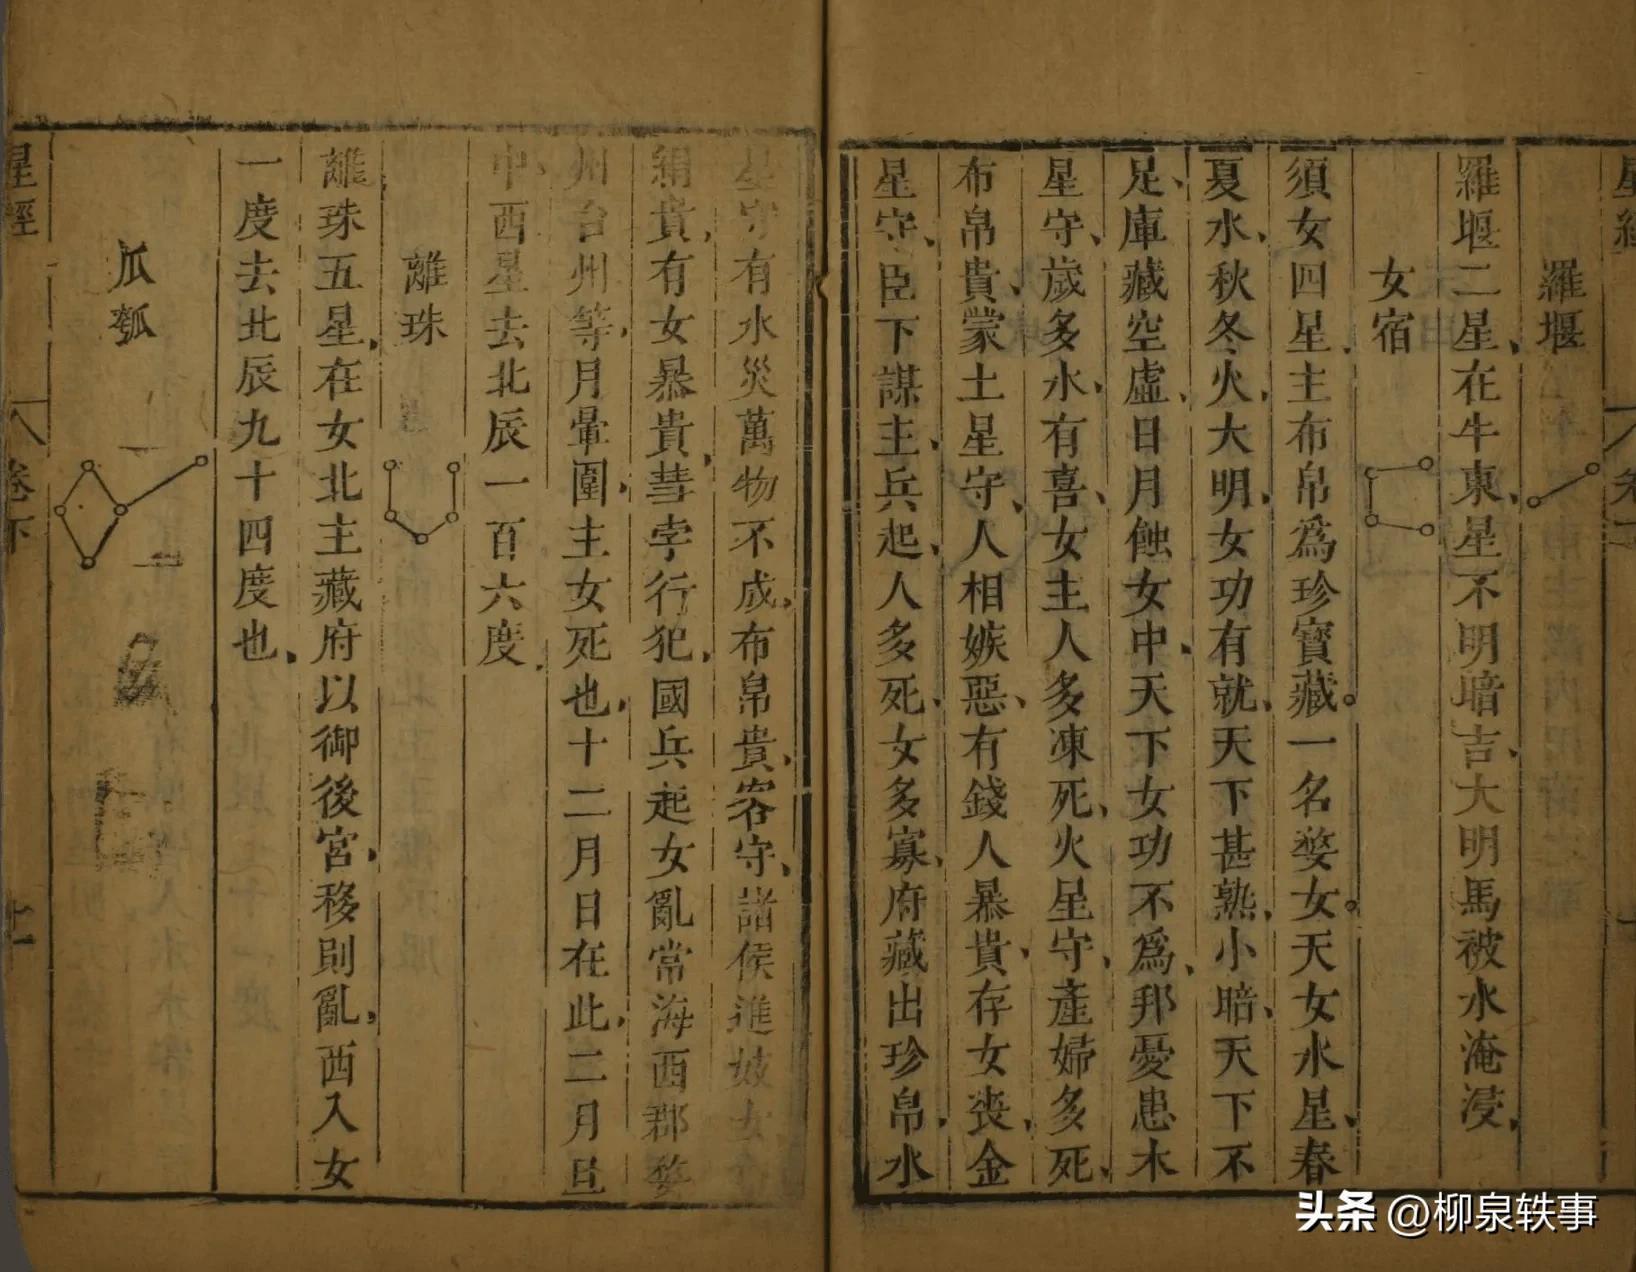 羅堰
羅堰二星、在牛東、星不明暗吉、大明馬被水淹浸、
女宿
須女四星、主布帛爲珍寳藏。一名婺女。天女水星、春
夏水、秋冬火、大明、女功有就、天下甚熟、小暗、天下不
足、庫藏空虛、日月蝕女中、天下女功不爲、邦憂患木
星守、歲多水、有喜、女主人多凍死、火星守、產婦多死、
布帛貴、蒙土星守、人相嫉惡、有錢人暴貴、存女喪、金
星守、臣下謀主、兵起、人多死、女多寡、府藏出珍帛、水
星守有水災萬物不成、布帛貴、客守、諸侯進妓女
絹貴、有女暴貴、彗孛行犯、國兵起女亂常海西郡婺
州台州等、月暈圍、主女死也、十二月日在此、二月旦
中、西星去北辰一百六度、
離珠
離珠五星、在女北主藏府以御後宮、移則亂、西入女
一度去北辰九十四度也、
瓜瓠
星經
卷下
頭条 @柳泉轶事